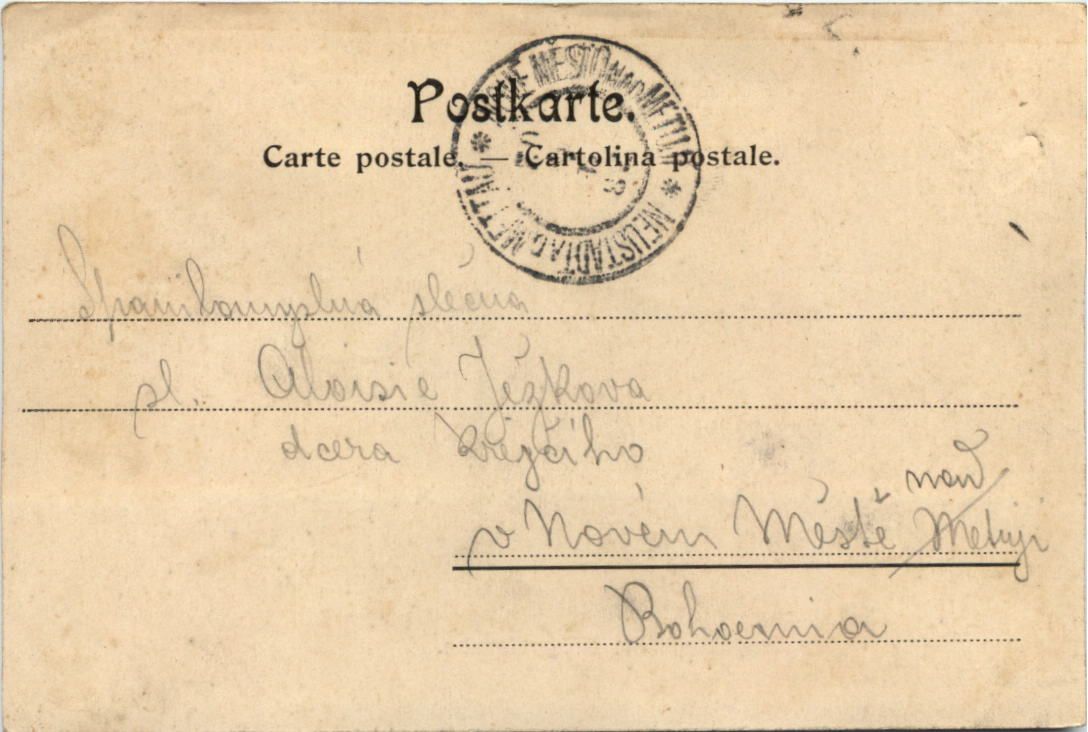 Postkarte.
Carte postale. — Cartolina postale.
NOVÉ MĚSTO NAD METUJÍ * NEUSTADT A.D. METTAU *
Spanilomyslná slečna
sl. Aloisie Ježkova
dcera Krejčího
nad
v Novém Městě Metuji
Bohoemia